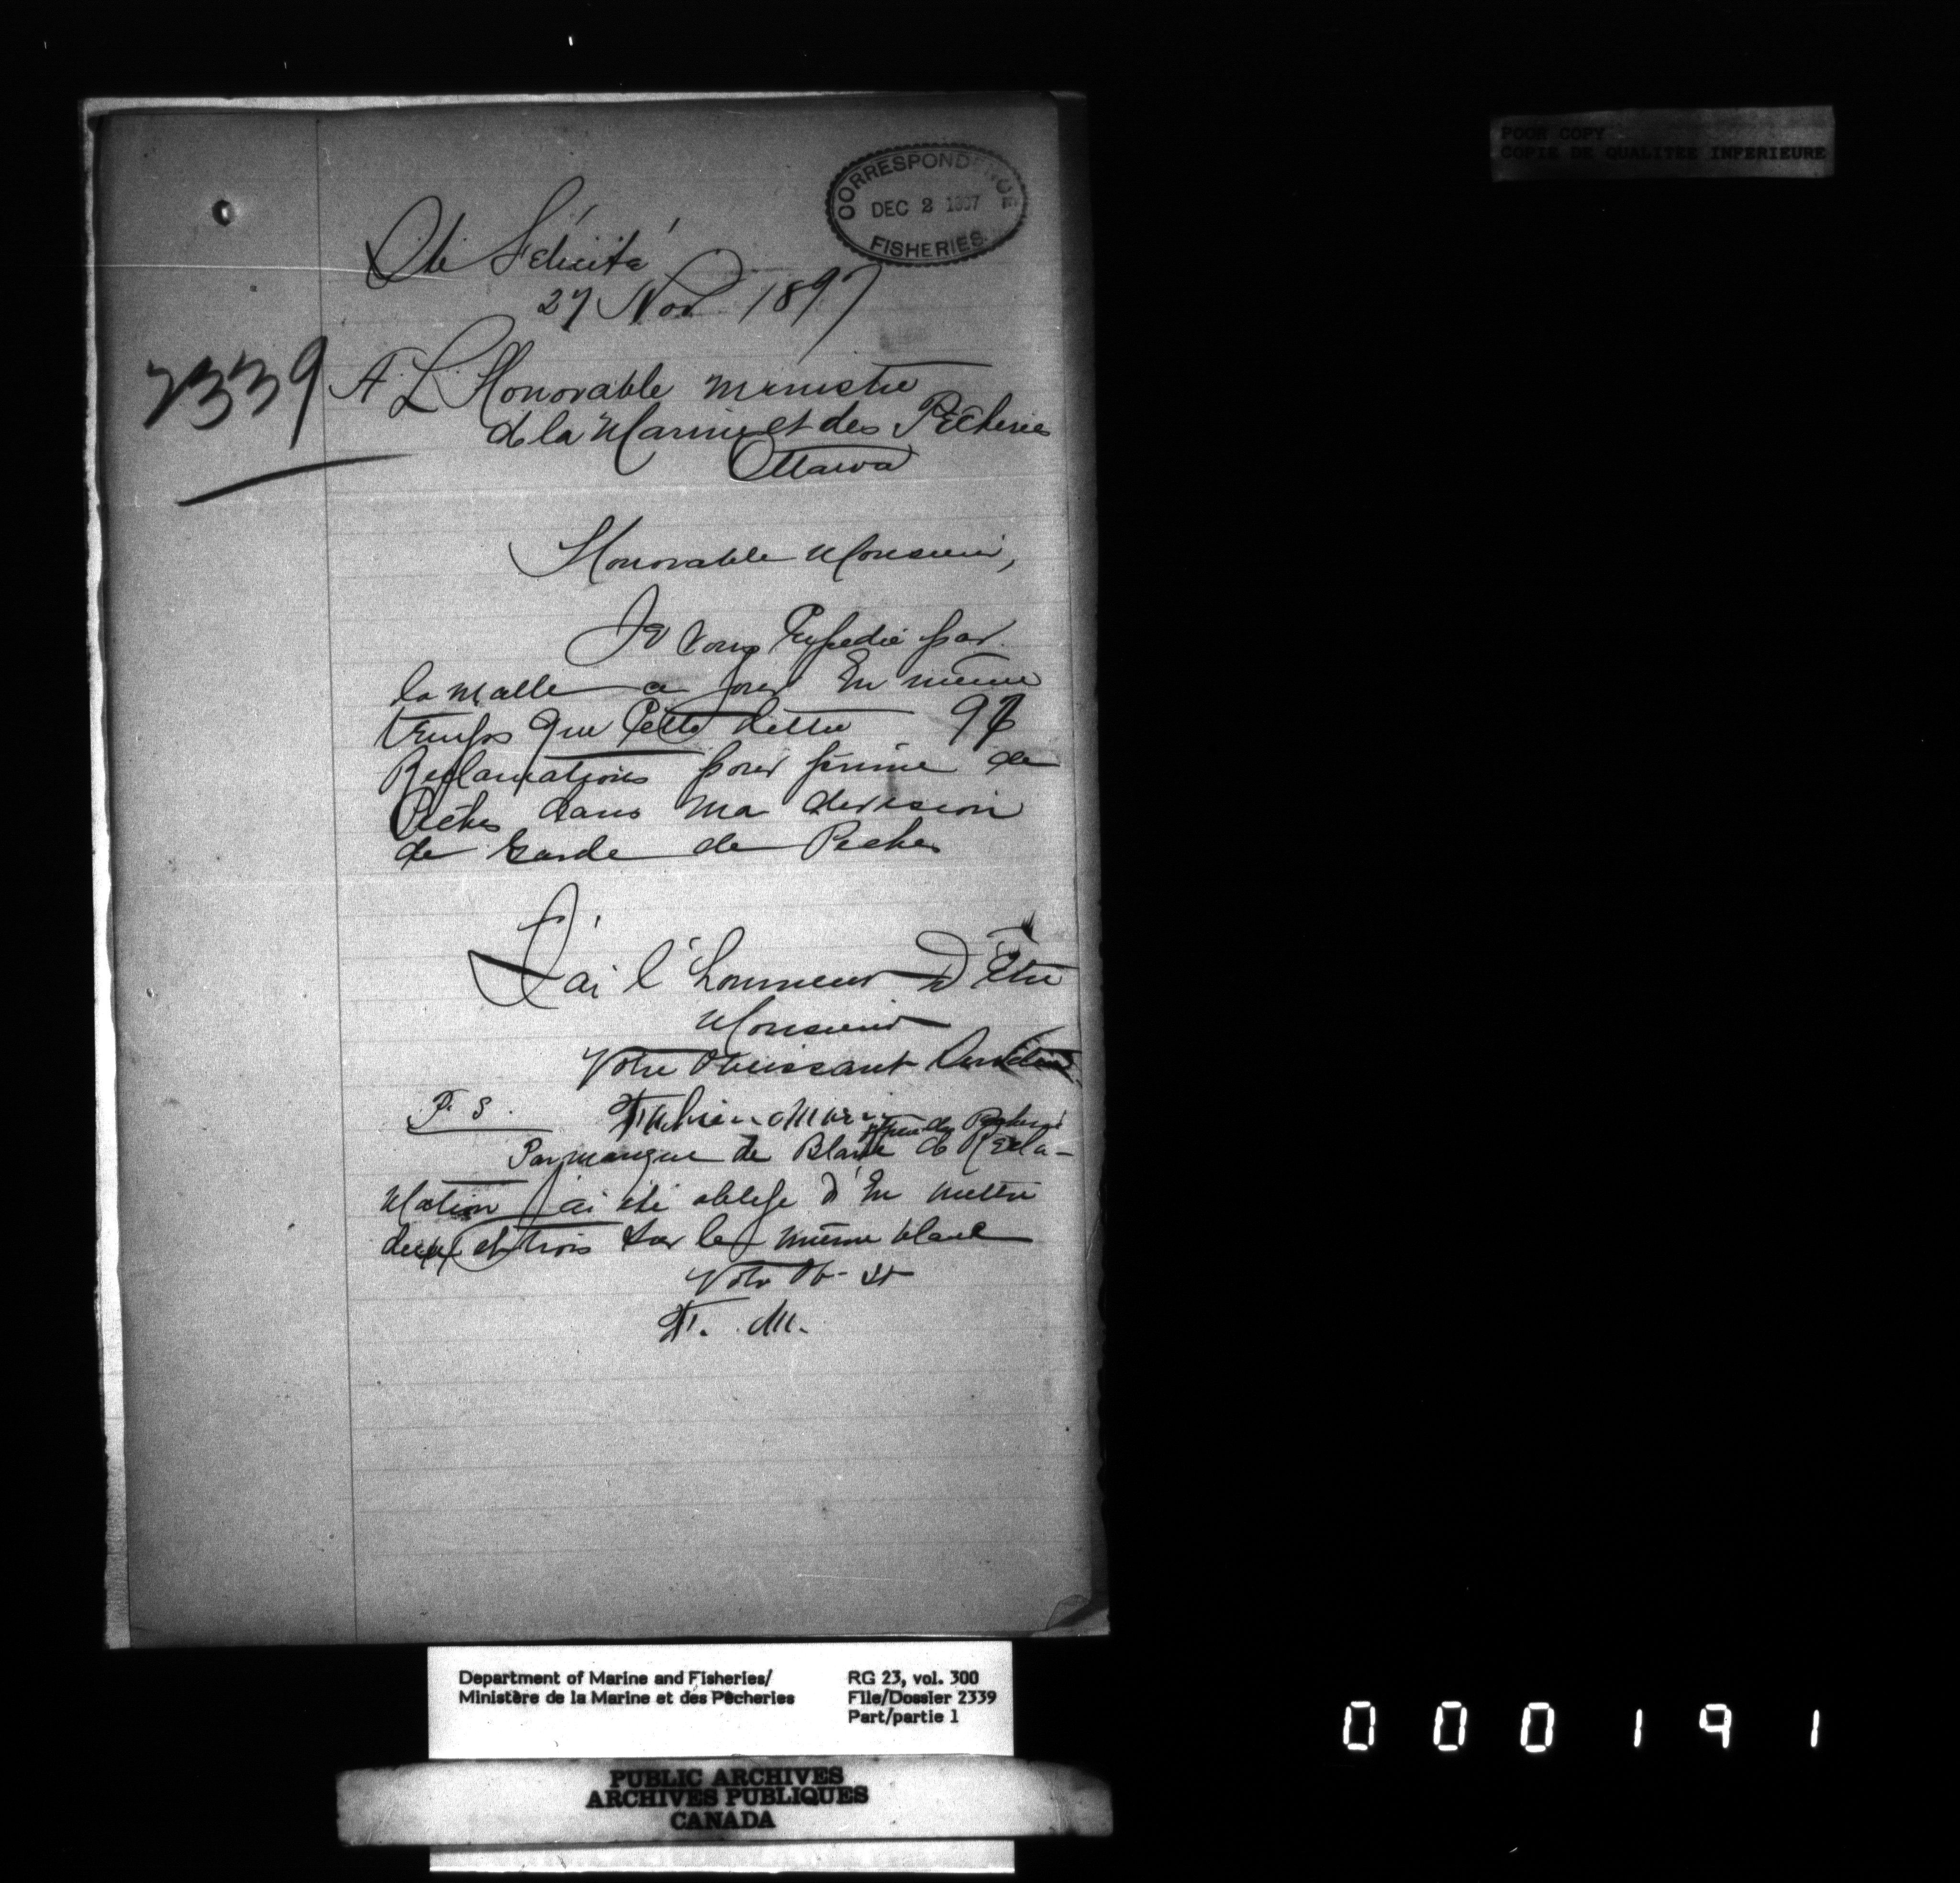 CORRESPONDENCE
DEC 2 1897
FISHERIES
POOR COPY
COPIE DE QUALITEE INFERIEURE
Ste Félicité
27 Nov 1897
2339
A L'Honorable ministre
de la Marine et des Pêcheries
Ottawa
Honorable Monsieur,
Je vous Expedie par
la malle a jour En même
temps que Cette lettre 97
Reclamations pour prime de
Pêches dans ma division
de Garde de Peches
J'ai l'honneur D'Etre
Monsieur
Votre Obeissant Serviteur
P. S.
Par manque de Blanc de Recla-
mation j'ai été oblige d'En mettre
deux et trois sur le même blanc
Votr Ob- st
F. M.
Department of Marine and Fisheries/
Ministère de la Marine et des Pêcheries
RG 23, vol. 300
File/Dossier 2339
Part/partie 1
PUBLIC ARCHIVES
ARCHIVES PUBLIQUES
CANADA
000191